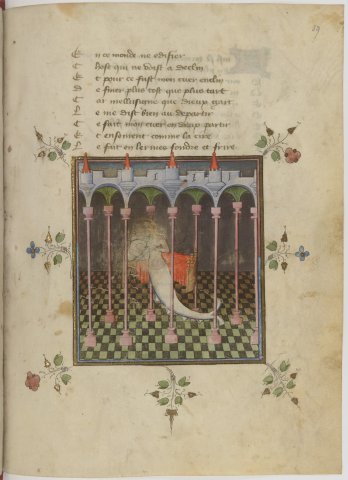 En ce monde ne edifier
Chose qui ne voist a declin
Et pour ce fust mon cuer enclin
De finer plus tost que plus tart
Car mellusigne que dieux gart
Le me dist bien au departir
Ce faire mon cuer en deux partir
Et ensement comme la cire
Le fait en lermes fondre et frire